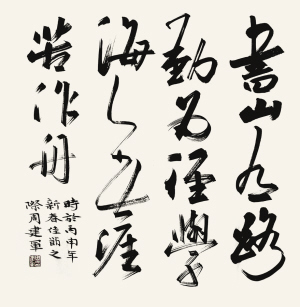 書山有路
勤为徑學
海无涯
苦作舟
時於丙申年
新春佳節之
際周建軍